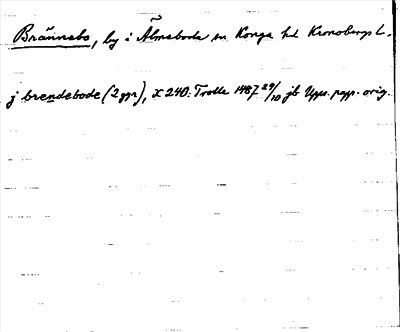 Brännebo, by i Älmeboda sn Konga hd Kronobergs L.
j brendebode (2 ggr), X 240: Trolle 1487 29/10 jb Upps. papp. orig.